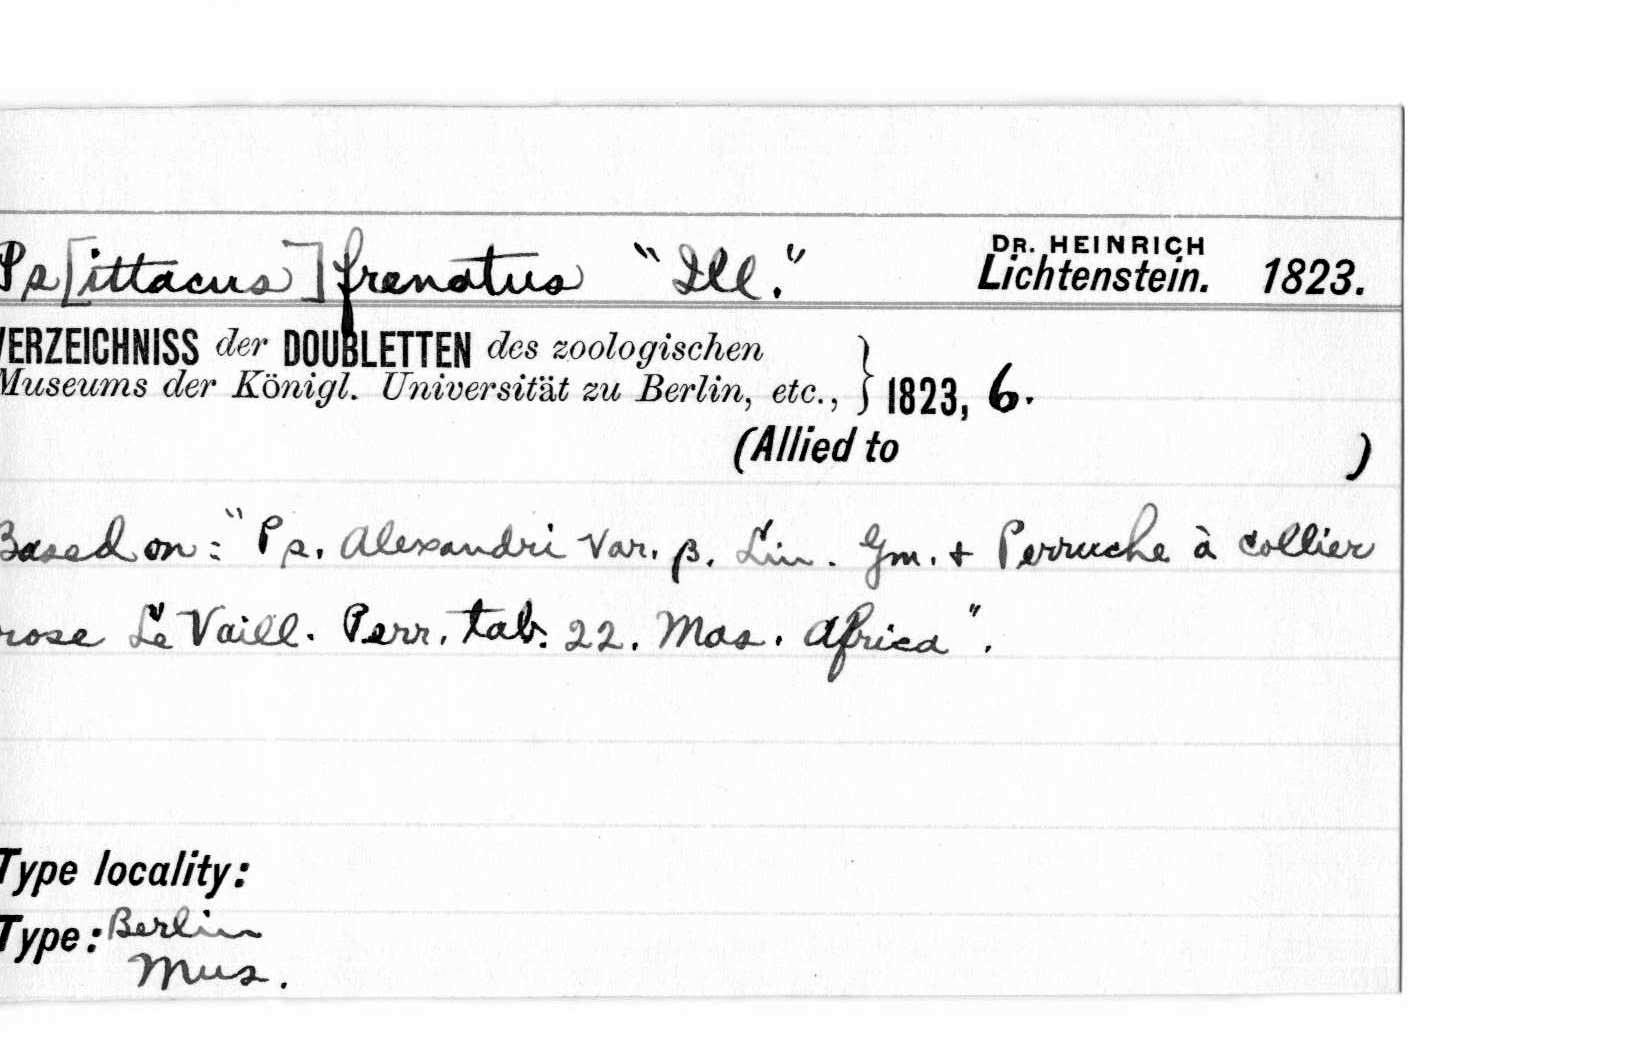 Ps[ittacus] frenatus "Ill." DR. HEINRICH Lichtenstein. 1823.
VERZEICHNISS der DOUBLETTEN des zoologischen
Museums der Königl. Universität zu Berlin, etc., } 1823, 6.
(Allied to )
Based on: "Ps. Alexandri Var. β. Lin. Gm. + Perruche à collier
rose Le Vaill. Perr. tab. 22. Mas. Africa".
Type locality:
Type: Berlin
Mus.